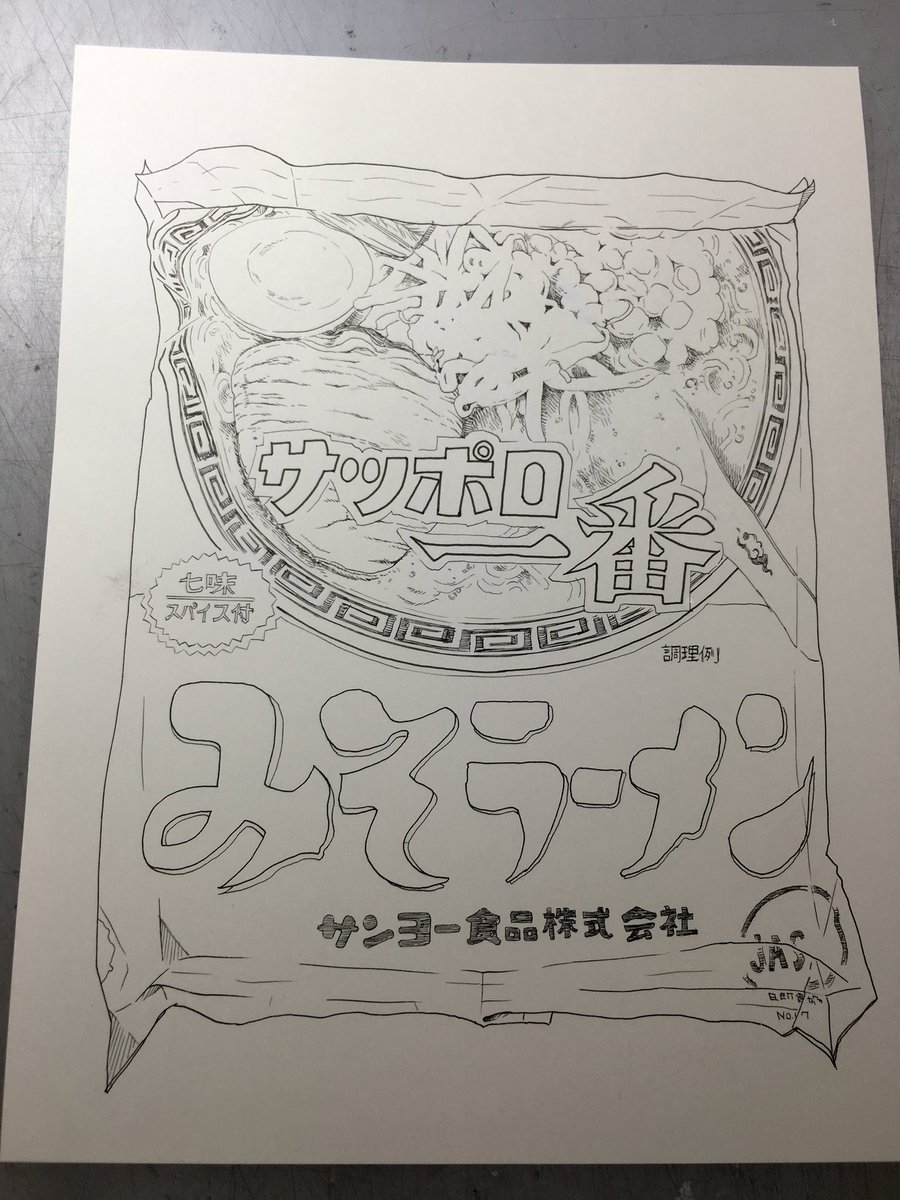 サッポロ
一番
七味
スパイス付
調理例
みそラーメン
サンヨー食品株式会社
JAS
NO.17